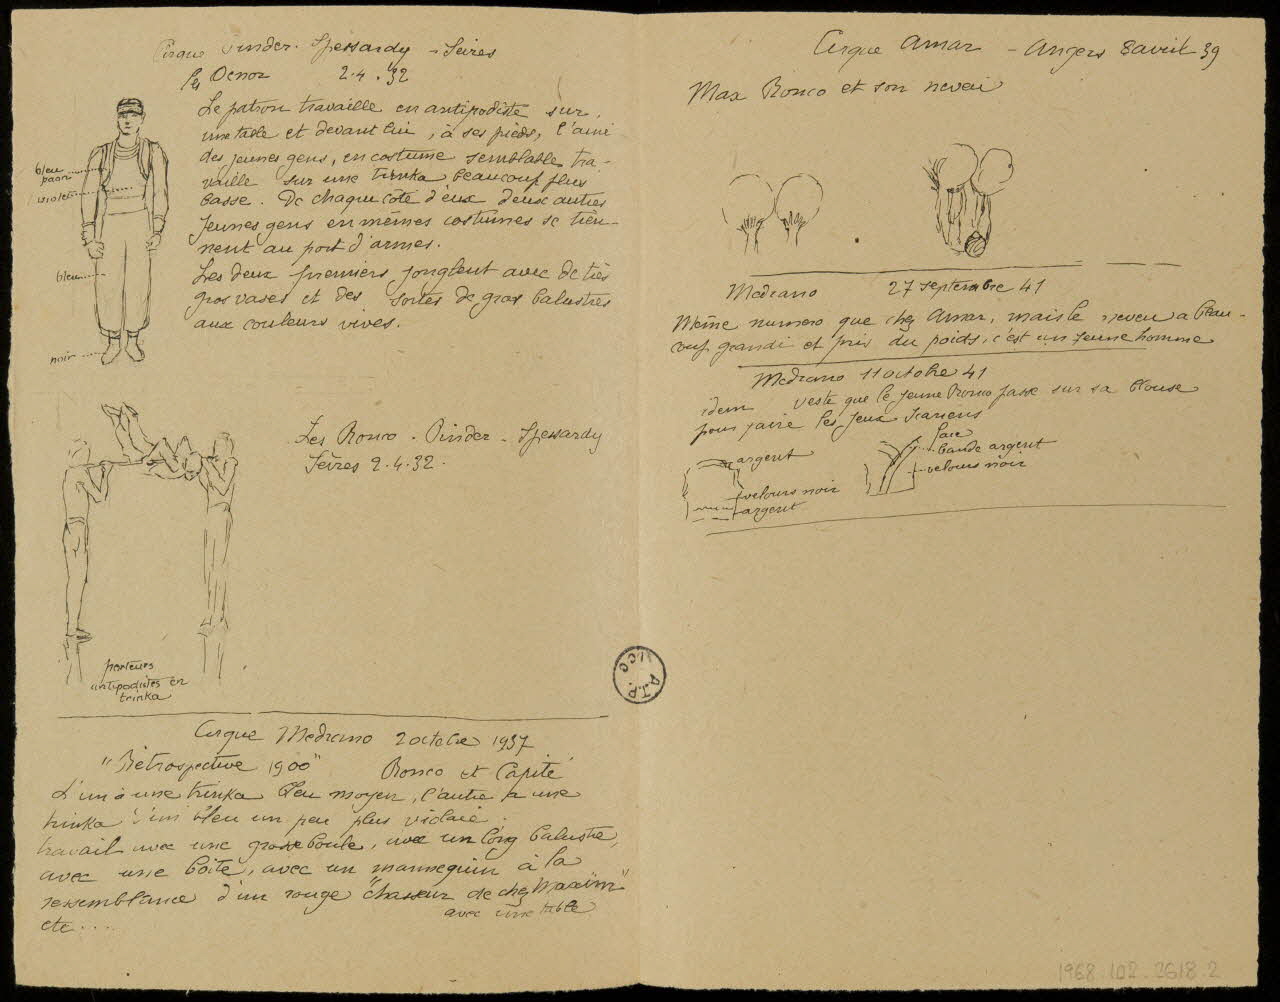 Cirque Pinder. Spessardy - Sèvres
les Denor 2.4.32
Le patron travaille en antipodiste sur,
une table et devant lui, à ses pieds, l'ainé
des jeunes gens, en costume semblable, tra-
vaille sur une trinka beaucoup plus
basse. De chaque côté d'eux deux autres
jeunes gens en mêmes costumes se tien-
nent au port d'armes.
Les deux premiers jonglent avec de très
gros vases et des sortes de gros balustres
aux couleurs vives.
bleu
paon
violet
bleu
noir
Les Ronco - Pinder - Spessardy
Sèvres 2.4.32.
porteurs
antipodistes en
trinka
Cirque Medrano 2 octobre 1937
"Rétrospective 1900" Ronco et Capité
L'un a une trinka bleu moyen, l'autre a une
trinka d'un bleu un peu plus violacé.
travail avec une grosse boule, avec un long balustre,
avec une boîte, avec un mannequin à la
ressemblance d'un rouge "chasseur de chez Maxim"
avec une table
etc....
Cirque Amar - Angers 8 avril 39
Max Ronco et son neveu
Medrano 27 septembre 41
Même numero que chez Amar, mais le neveu a beau-
coup grandi et pris du poids, c'est un jeune homme
Medrano 11 octobre 41
idem veste que le jeune Ronco passe sur sa blouse
pour faire les jeux Icariens
argent
velours noir
argent
bande argent
velours noir
A.T.P.
1968.102.2618.2